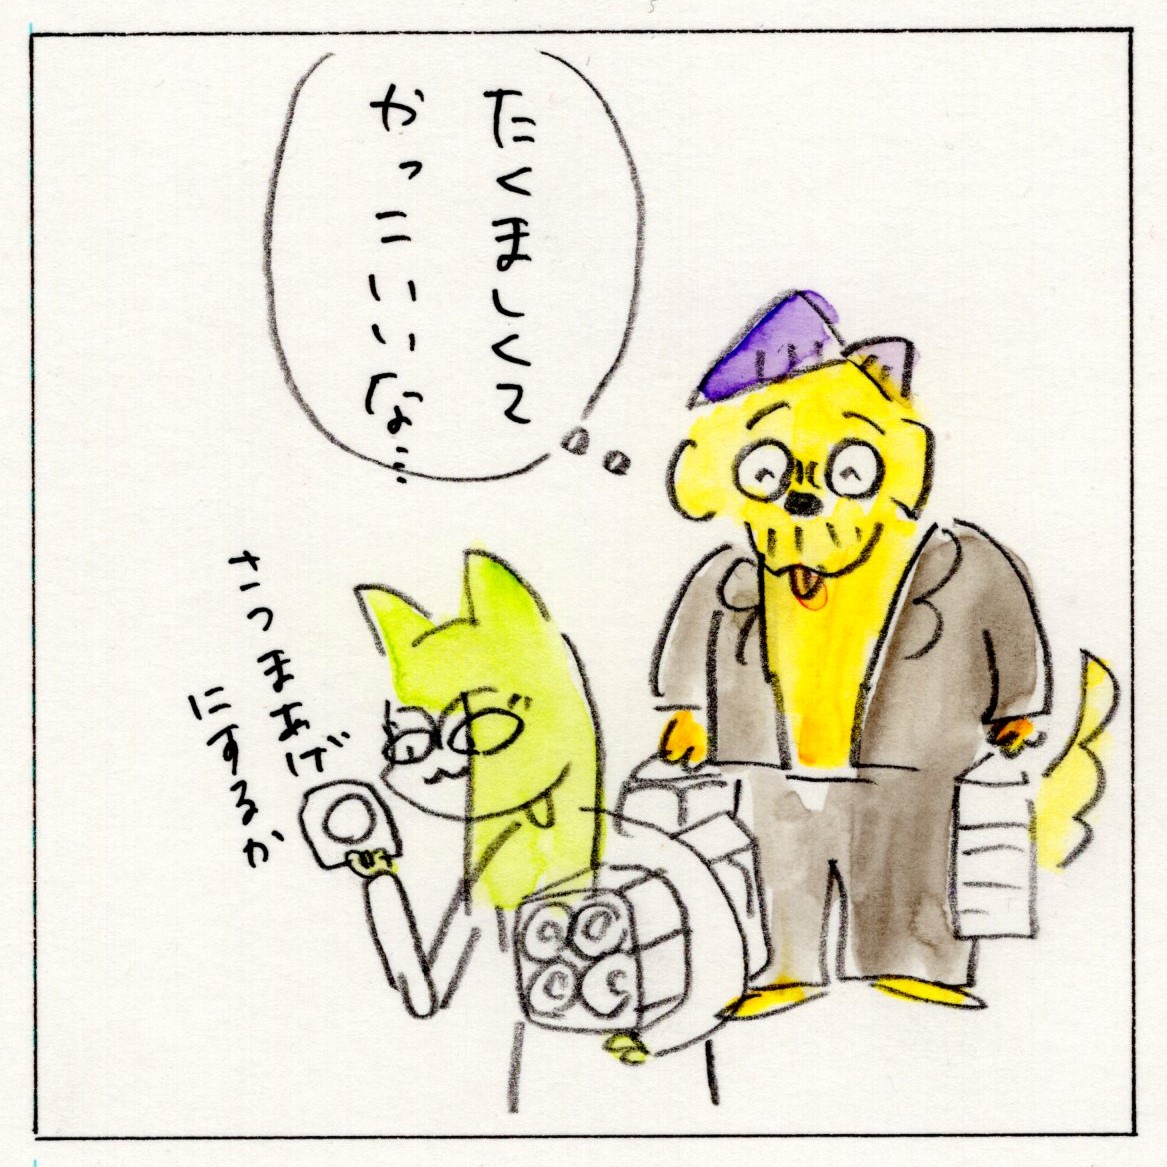 たくましくて
かっこいいな…
さつまあげ
にするか